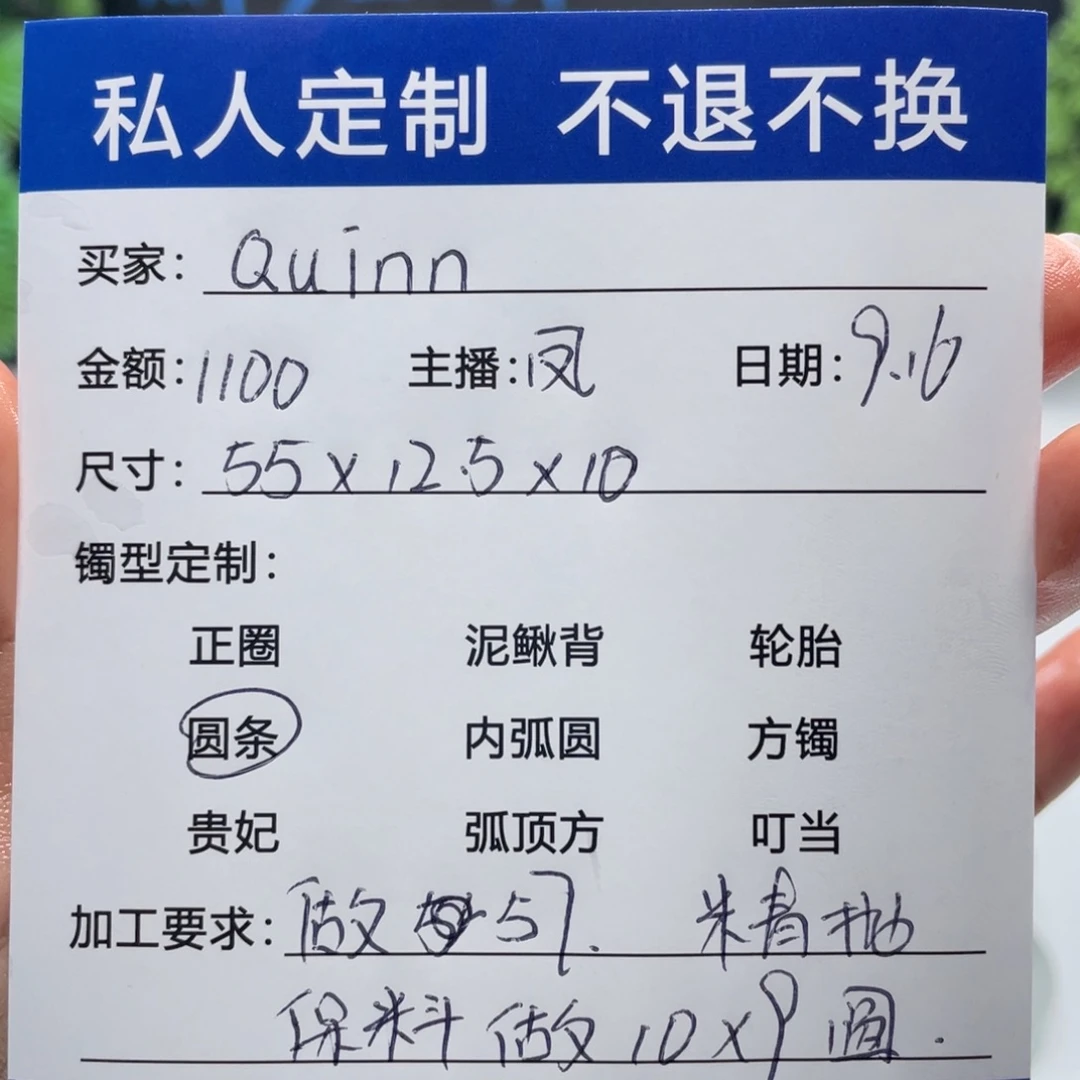 私人定制 不退不换
买家：Quinn
金额：1100 主播：凤 日期：9.16
尺寸：55×12.5×10
镯型定制：
正圈 泥鳅背 轮胎
圆条 内弧圆 方镯
贵妃 弧顶方 叮当
加工要求：做 57. 精抛
保料做10×9圆.